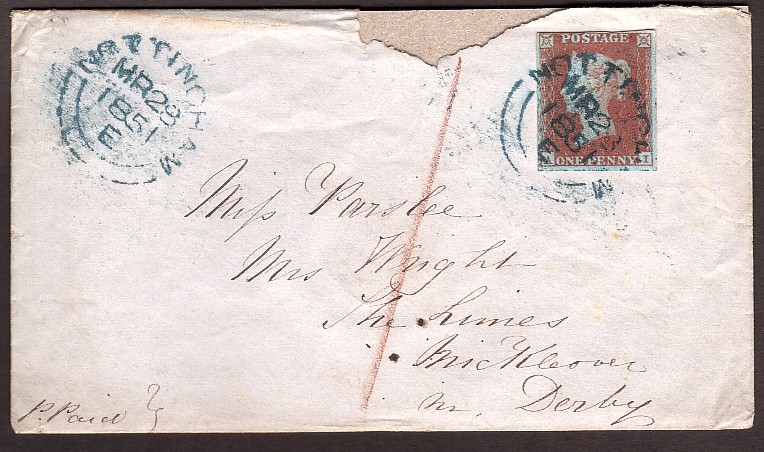 NOTTINGHAM
MR 29
1851
E
POSTAGE
ONE PENNY
NOTTINGHAM
MR 29
1851
E
Miss Parslee
Mrs Wright
The Limes
Mickleover
nr. Derby
P. Paid